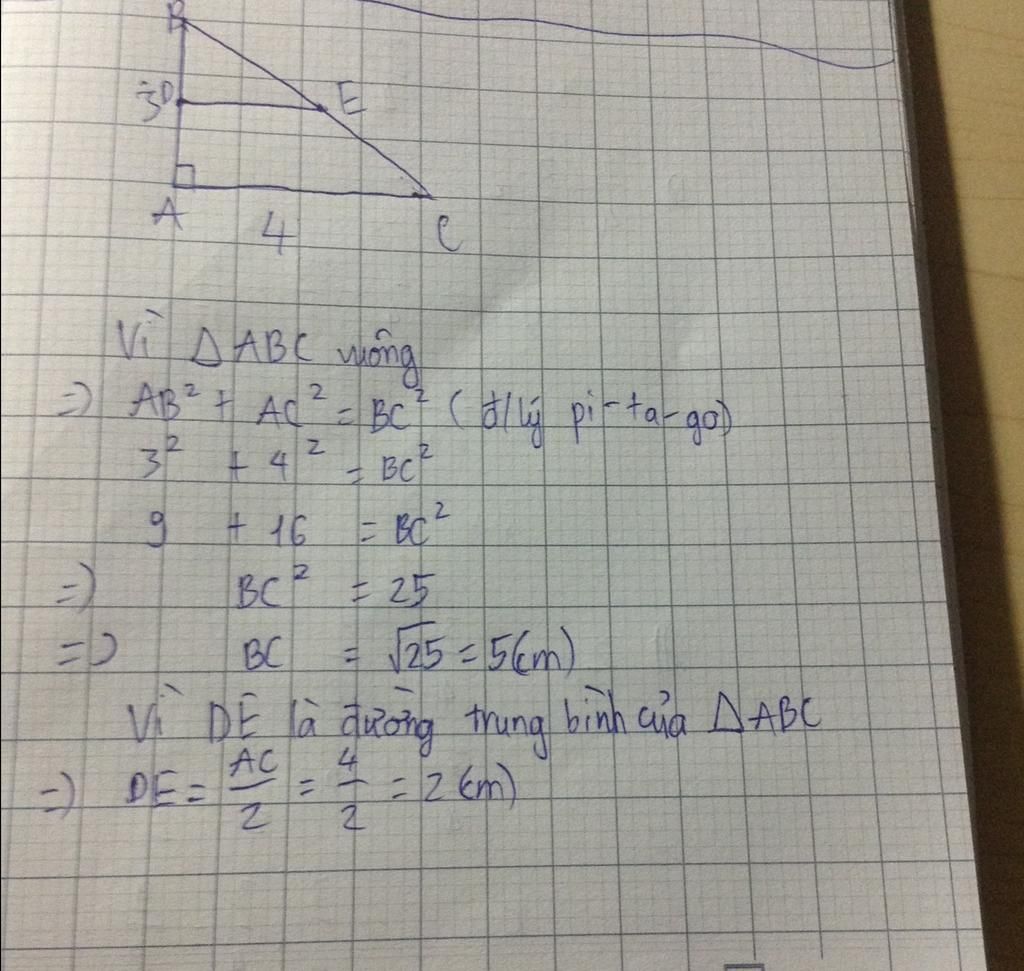 B
3 D E
A 4 C
Vì Δ ABC vuông
=) AB² + AC² = BC² ( đ/lý pi-ta-go)
3² + 4² = BC²
9 + 16 = BC²
=) BC² = 25
=) BC = √25 = 5(m)
Vì DE là đường trung bình của Δ ABC
=) DE = AC/2 = 4/2 = 2 (m)